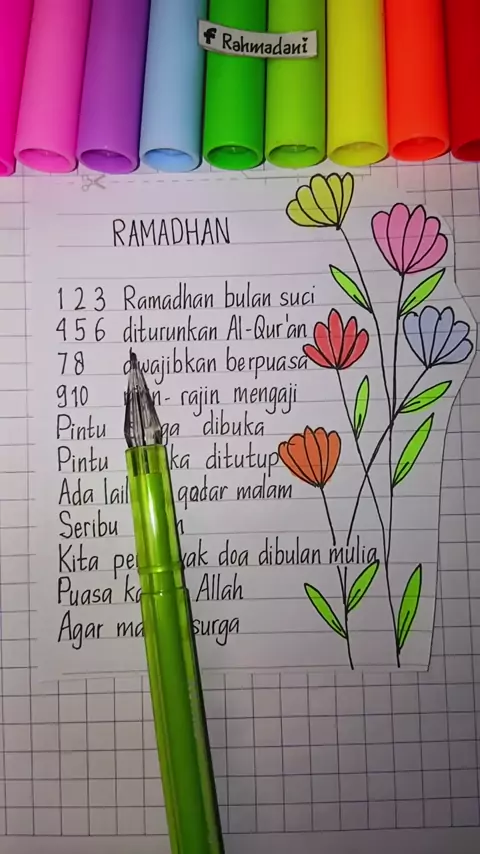 Rahmadani
RAMADHAN
1 2 3 Ramadhan bulan suci
4 5 6 diturunkan Al-Qur'an
7 8 diwajibkan berpuasa
9 10 rajin - rajin mengaji
Pintu dibuka
Pintu ditutup
Ada qodar malam
Seribu
Kita doa dibulan mulia
Puasa Allah
Agar surga